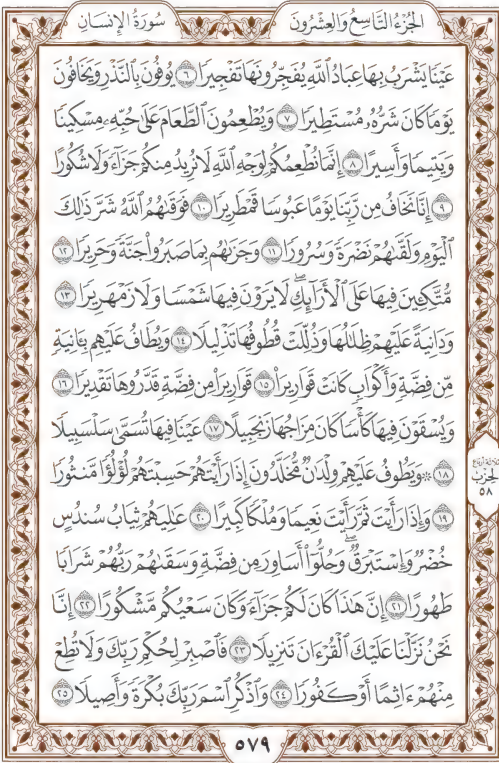 الجُزْءُ التَّاسِعُ وَالعِشْرُونَ
سُورَةُ الإِنسَانِ
عَيْنًا يَشْرَبُ بِهَا عِبَادُ ٱللَّهِ يُفَجِّرُونَهَا تَفْجِيرًا ٦ يُوفُونَ بِٱلنَّذْرِ وَيَخَافُونَ
يَوْمًا كَانَ شَرُّهُۥ مُسْتَطِيرًا ٧ وَيُطْعِمُونَ ٱلطَّعَامَ عَلَىٰ حُبِّهِۦ مِسْكِينًا
وَيَتِيمًا وَأَسِيرًا ٨ إِنَّمَا نُطْعِمُكُمْ لِوَجْهِ ٱللَّهِ لَا نُرِيدُ مِنكُمْ جَزَآءً وَلَا شُكُورًا
٩ إِنَّا نَخَافُ مِن رَّبِّنَا يَوْمًا عَبُوسًا قَمْطَرِيرًا ١٠ فَوَقَىٰهُمُ ٱللَّهُ شَرَّ ذَٰلِكَ
ٱلْيَوْمِ وَلَقَّىٰهُمْ نَضْرَةً وَسُرُورًا ١١ وَجَزَىٰهُم بِمَا صَبَرُوا۟ جَنَّةً وَحَرِيرًا ١٢
مُّتَّكِـِٔينَ فِيهَا عَلَى ٱلْأَرَآئِكِ ۖ لَا يَرَوْنَ فِيهَا شَمْسًا وَلَا زَمْهَرِيرًا ١٣
وَدَانِيَةً عَلَيْهِمْ ظِلَٰلُهَا وَذُلِّلَتْ قُطُوفُهَا تَذْلِيلًا ١٤ وَيُطَافُ عَلَيْهِم بِـَٔانِيَةٍ
مِّن فِضَّةٍ وَأَكْوَابٍ كَانَتْ قَوَارِيرَا۠ ١٥ قَوَارِيرَا۟ مِن فِضَّةٍ قَدَّرُوهَا تَقْدِيرًا ١٦
وَيُسْقَوْنَ فِيهَا كَأْسًا كَانَ مِزَاجُهَا زَنجَبِيلًا ١٧ عَيْنًا فِيهَا تُسَمَّىٰ سَلْسَبِيلًا
١٨ ۞ وَيَطُوفُ عَلَيْهِمْ وِلْدَٰنٌ مُّخَلَّدُونَ إِذَا رَأَيْتَهُمْ حَسِبْتَهُمْ لُؤْلُؤًا مَّنثُورًا
١٩ وَإِذَا رَأَيْتَ ثَمَّ رَأَيْتَ نَعِيمًا وَمُلْكًا كَبِيرًا ٢٠ عَٰلِيَهُمْ ثِيَابُ سُندُسٍ
خُضْرٌ وَإِسْتَبْرَقٌ ۖ وَحُلُّوٓا۟ أَسَاوِرَ مِن فِضَّةٍ وَسَقَىٰهُمْ رَبُّهُمْ شَرَابًا
طَهُورًا ٢١ إِنَّ هَٰذَا كَانَ لَكُمْ جَزَآءً وَكَانَ سَعْيُكُم مَّشْكُورًا ٢٢ إِنَّا
نَحْنُ نَزَّلْنَا عَلَيْكَ ٱلْقُرْءَانَ تَنزِيلًا ٢٣ فَٱصْبِرْ لِحُكْمِ رَبِّكَ وَلَا تُطِعْ
مِنْهُمْ ءَاثِمًا أَوْ كَفُورًا ٢٤ وَٱذْكُرِ ٱسْمَ رَبِّكَ بُكْرَةً وَأَصِيلًا ٢٥
ثلاثة أرباع
الحِزْب
٥٨
٥٧٩